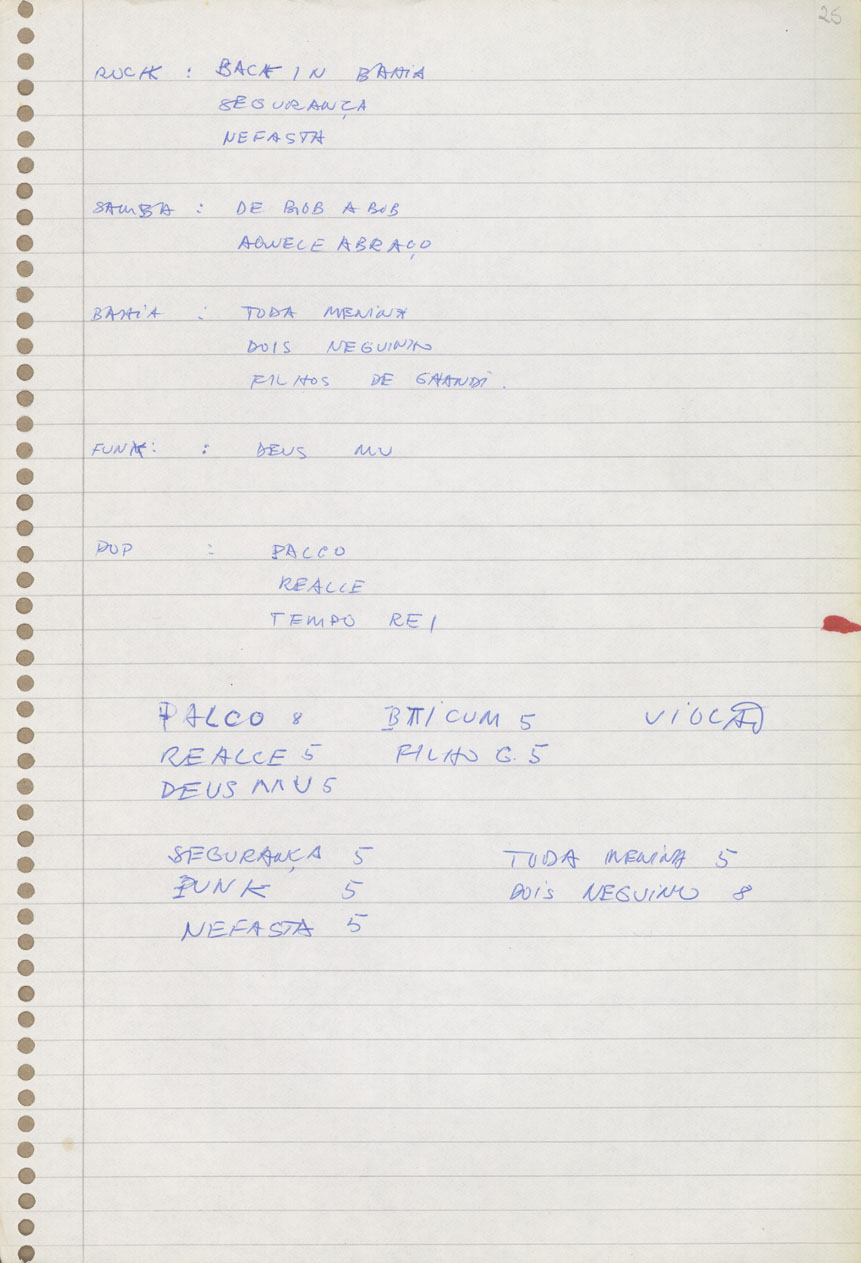 25
ROCK : BACK IN BAHIA
SEGURANÇA
NEFASTA
SAMBA : DE BOB A BOB
AQUELE ABRAÇO
BAHIA : TODA MENINA
DOIS NEGUINHO
FILHOS DE GHANDI.
FUNK: : DEUS MU
POP : PALCO
REALCE
TEMPO REI
PALCO 8 BATICUM 5 VIOLÃO
REALCE 5 FILHO G. 5
DEUS MU 5
SEGURANÇA 5 TODA MENINA 5
PUNK 5 DOIS NEGUINHO 8
NEFASTA 5